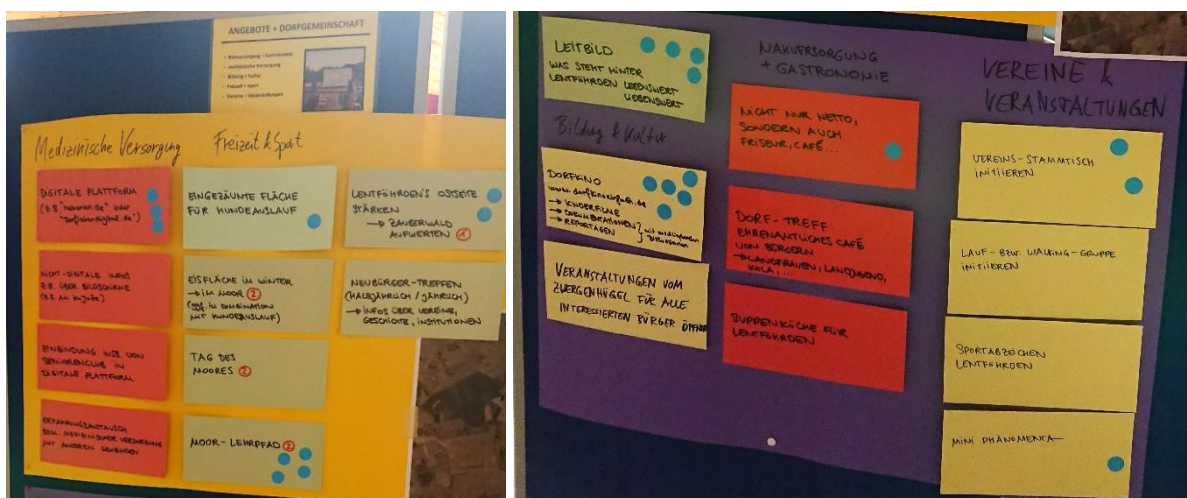 ANGEBOTE + DORFGEMEINSCHAFT
• Nahversorgung + Gastronomie
• medizinische Versorgung
• Bildung + Kultur
• Freizeit + Sport
• Vereine + Veranstaltungen
Medizinische Versorgung
DIGITALE PLATTFORM
NICHT-DIGITALE INFOS
Z.B. ÜBER BILDSCHIRME
EINBINDUNG VON
SENIORENCLUB IN
DIGITALE PLATTFORM
ERFAHRUNGSAUSTAUSCH
BZGL. MEDIZINISCHER VERSORGUNG
MIT ANDEREN GEMEINDEN
Freizeit & Sport
EINGEZÄUNTE FLÄCHE
FÜR HUNDEAUSLAUF
EISFLÄCHE IM WINTER
→ IM MOOR 2
(ggf. IN COMBINATION
MIT HUNDEAUSLAUF)
TAG DES
MOORES 2
MOOR-LEHRPFAD 2
LENTFÖHRDEN'S OSTSEITE
STÄRKEN
→ ZAUBERWALD
AUFWERTEN 1
NEUBÜRGER-TREFFEN
(HALBJÄHRLICH / JÄHRLICH)
→ INFOS ÜBER VEREINE,
GESCHICHTE, INSTITUTIONEN
LEITBILD
WAS STEHT HINTER
LENTFÖHRDEN LEBENSWERT
LIEBENSWERT
Bildung & Kultur
DORFKINO
→ KINDERFILME
→ DOKUMENTATIONEN
→ REPORTAGEN
VERANSTALTUNGEN VOM
ZWERGENHÜGEL FÜR ALLE
INTERESSIERTEN BÜRGER ÖFFNEN
NAHVERSORGUNG
+ GASTRONOMIE
NICHT NUR NETTO,
SONDERN AUCH
FRISEUR, CAFÉ...
DORF-TREFF
EHRENAMTLICHES CAFÉ
VON BÜRGERN
→ LANDFRAUEN, LANDJUGEND,
SUPPENKÜCHE FÜR
LENTFÖHRDEN
VEREINE &
VERANSTALTUNGEN
VEREINS-STAMMTISCH
INITIIEREN
LAUF- BZW. WALKING-GRUPPE
INITIIEREN
SPORTABZEICHEN
LENTFÖHRDEN
MINI PHÄNOMENTA